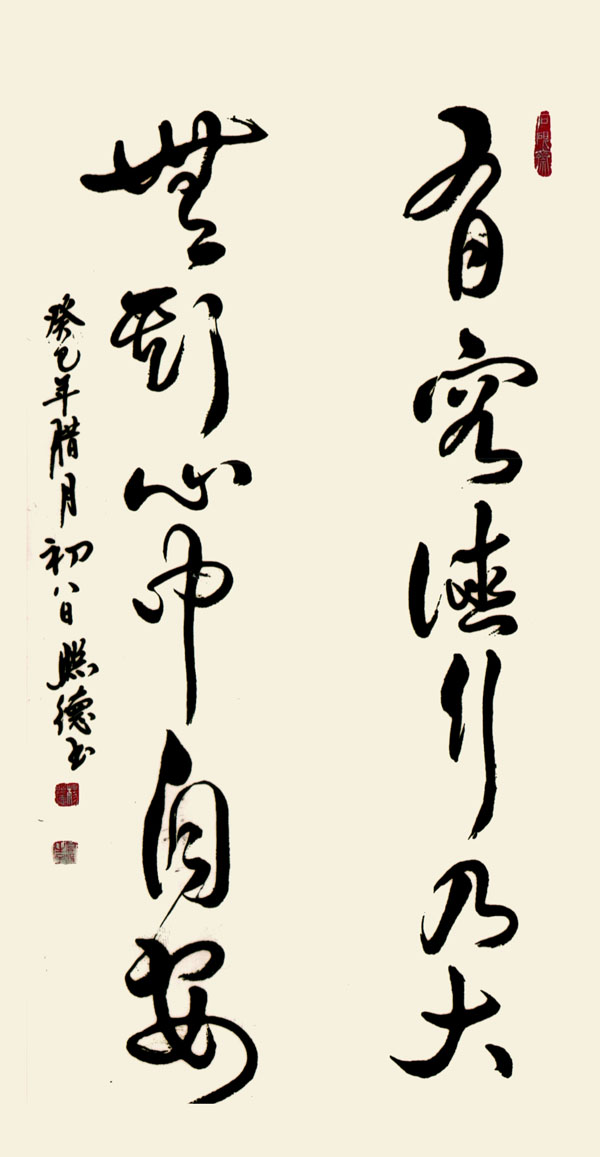 有容德行乃大
無欺心中自安
癸巳年腊月初八日德书